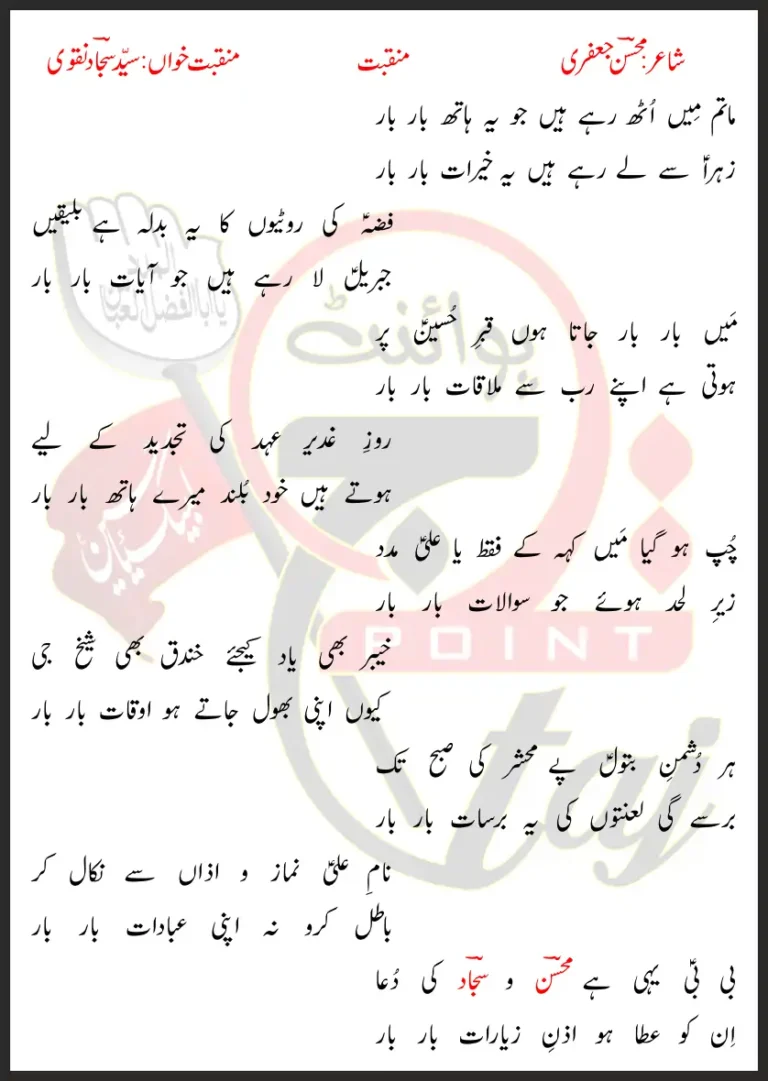 شاعر: محسنؔ جعفری منقبت منقبت خواں: سیّد سجّادؔ نقوی
ماتم مِیں اُٹھ رہے ہیں جو یہ ہاتھ بار بار
زہراؑ سے لے رہے ہیں یہ خیرات بار بار
فضہؑ کی روٹیوں کا یہ بدلہ ہے بلیقیں
جبریلؑ لا رہے ہیں جو آیات بار بار
مَیں بار بار جاتا ہوں قبرِ حُسینؑ پر
ہوتی ہے اپنے رب سے ملاقات بار بار
روزِ غدیر عہد کی تجدید کے لیے
ہوتے ہیں خود بُلند میرے ہاتھ بار بار
چُپ ہو گیا مَیں کہہ کے فقط یا علیؑ مدد
زیرِ لحد ہوئے جو سوالات بار بار
خیبر بھی یاد کیجئے خندق بھی شیخ جی
کیوں اپنی بھول جاتے ہو اوقات بار بار
ہر دُشمنِ بتولؑ پے محشر کی صبح تک
برسے گی لعنتوں کی یہ برسات بار بار
نامِ علیؑ نماز و اذاں سے نکال کر
باطل کرو نہ اپنی عبادات بار بار
بی بیؑ یہی ہے محسنؔ و سجّادؔ کی دُعا
اِن کو عطا ہو اذنِ زیارات بار بار
پوائنٹ
ج
POINT
taj
لبیک یا حسین
یا ابا الفضل العباس